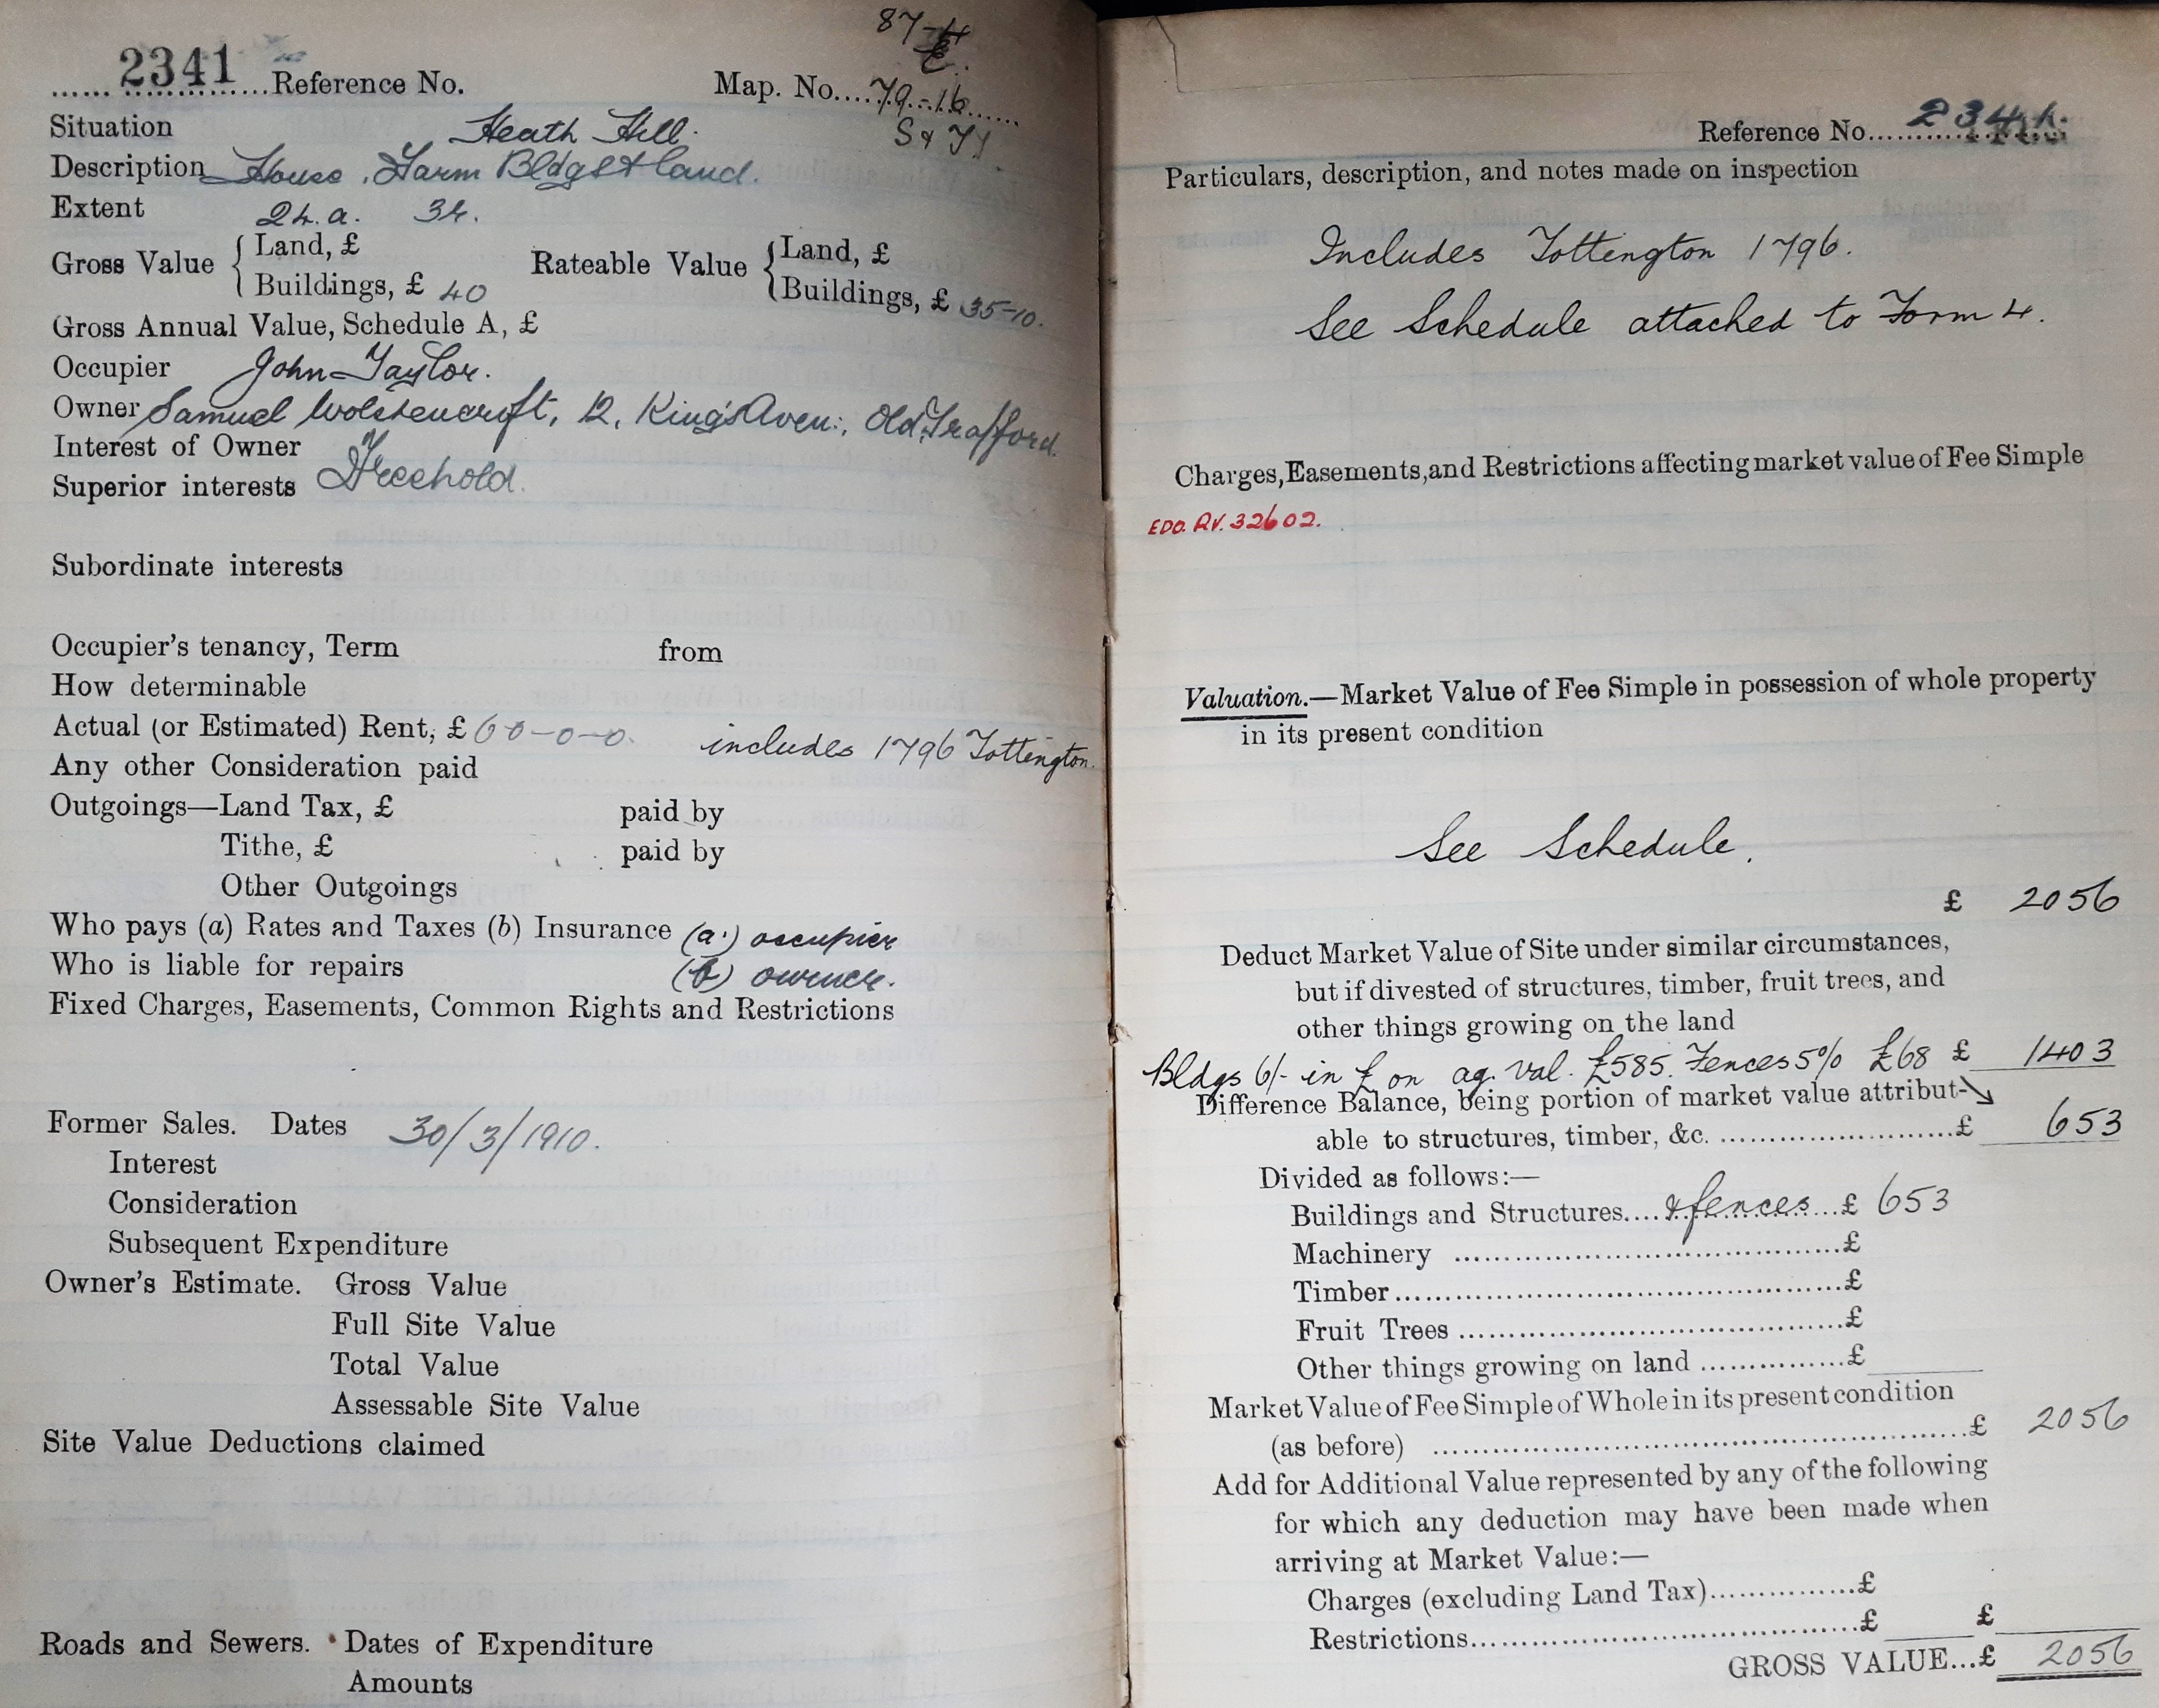 87-
2341 Reference No. Map. No. 79-16
S & 71
Situation Heath Hill.
Description House, Farm Bldgs & land.
Extent 24.a. 3r.
Gross Value { Land, £ Rateable Value { Land, £
Buildings, £ 40 Buildings, £ 35-10.
Gross Annual Value, Schedule A, £
Occupier John Taylor.
Owner Samuel Wolstencroft, 12, King's Aven:, Old Trafford.
Interest of Owner
Superior interests Freehold.
Subordinate interests
Occupier's tenancy, Term from
How determinable
Actual (or Estimated) Rent, £ 60-0-0. includes 1796 Tottington.
Any other Consideration paid
Outgoings—Land Tax, £ paid by
Tithe, £ paid by
Other Outgoings
Who pays (a) Rates and Taxes (b) Insurance (a.) occupier
Who is liable for repairs (b) owner.
Fixed Charges, Easements, Common Rights and Restrictions
Former Sales. Dates 30/3/1910.
Interest
Consideration
Subsequent Expenditure
Owner's Estimate. Gross Value
Full Site Value
Total Value
Assessable Site Value
Site Value Deductions claimed
Roads and Sewers. Dates of Expenditure
Amounts
Reference No. 2341.
Particulars, description, and notes made on inspection
Includes Tottington 1796.
See Schedule attached to Form 4.
Charges, Easements, and Restrictions affecting market value of Fee Simple
EDO. RV. 32602.
Valuation.—Market Value of Fee Simple in possession of whole property
in its present condition
See Schedule.
£ 2056
Deduct Market Value of Site under similar circumstances,
but if divested of structures, timber, fruit trees, and
other things growing on the land
Bldgs 6/- in £ on ag. val. £585. Fences 5% £68 £ 1403
Difference Balance, being portion of market value attribut-
able to structures, timber, &c. £ 653
Divided as follows:—
Buildings and Structures & fences £ 653
Machinery £
Timber £
Fruit Trees £
Other things growing on land £
Market Value of Fee Simple of Whole in its present condition
(as before) £ 2056
Add for Additional Value represented by any of the following
for which any deduction may have been made when
arriving at Market Value:—
Charges (excluding Land Tax) £
Restrictions £ £
GROSS VALUE...£ 2056